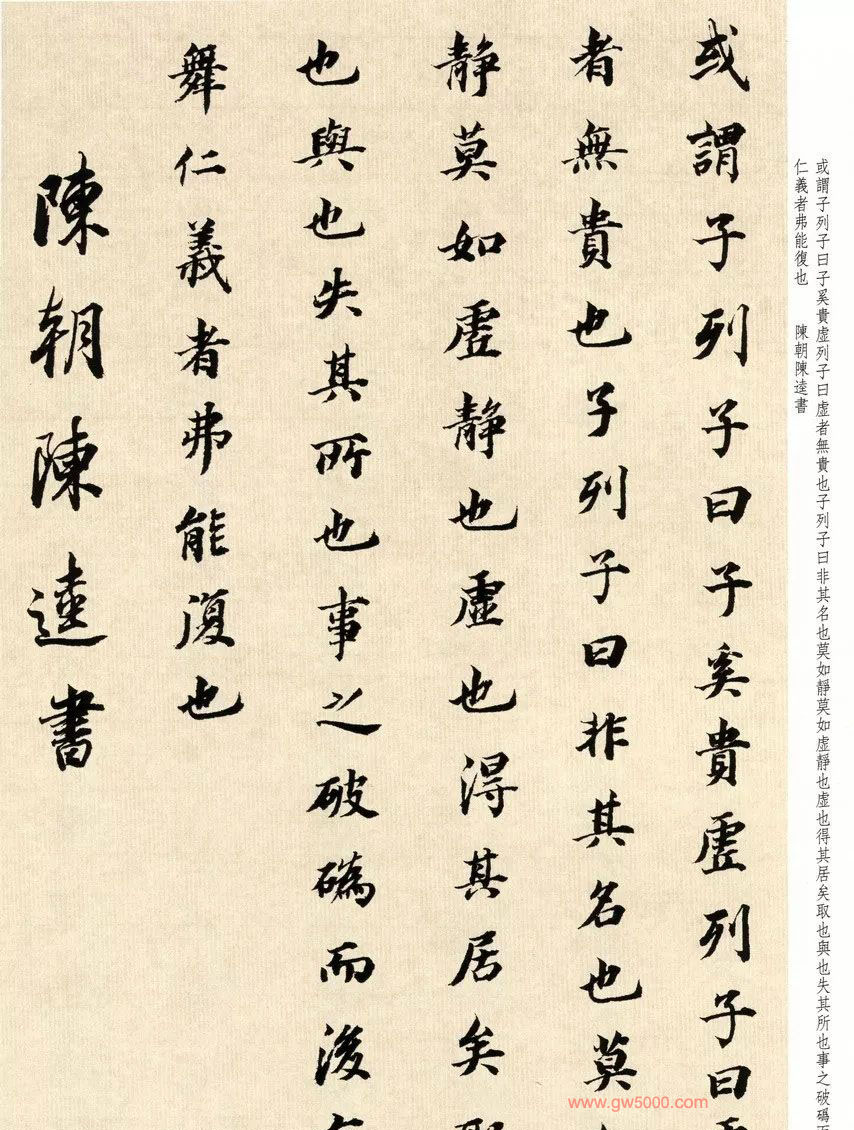 或謂子列子曰子奚貴虛列子曰虛者無貴也子列子曰非其名也莫如靜莫如虛靜也虛也得其居矣取也與也失其所也事之破䃣
仁義者弗能復也　陳朝陳逵書
或謂子列子曰子奚貴虛列子曰
者無貴也子列子曰非其名也莫
靜莫如虛靜也虛也得其居矣
也與也失其所也事之破䃣而後
舞仁義者弗能復也
陳朝陳逵書
www.gw5000.com